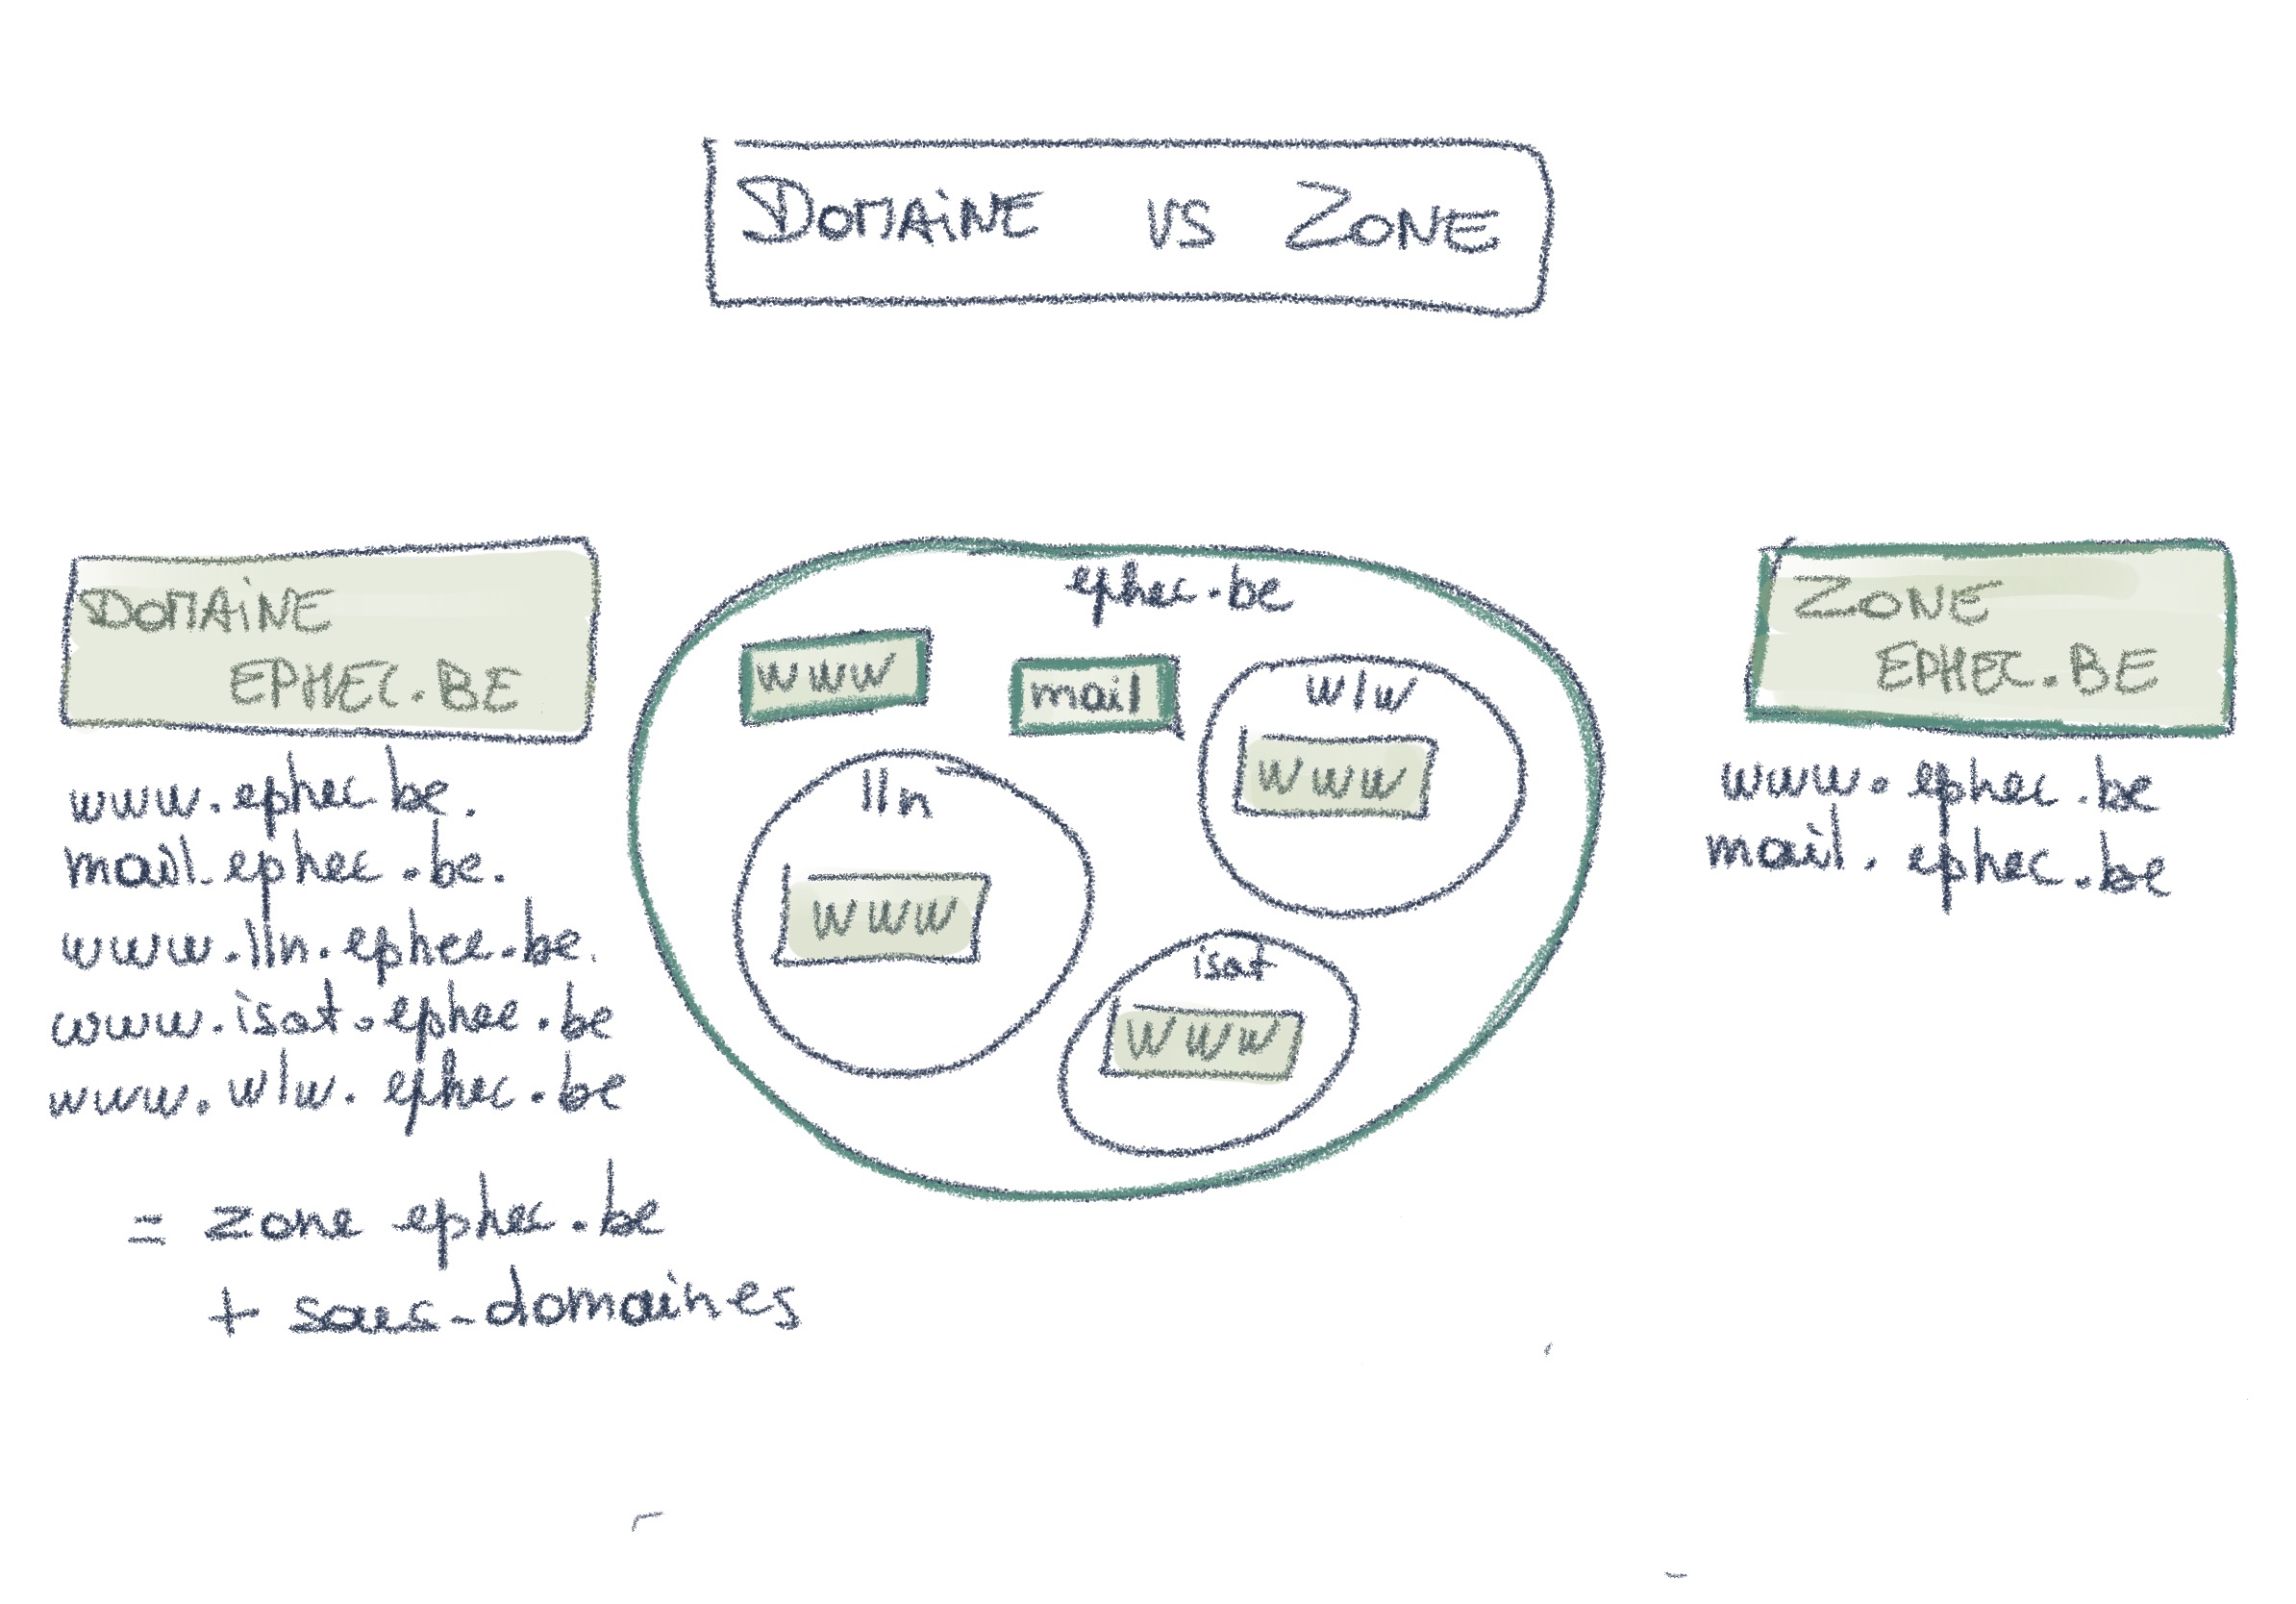 DOMAiNE vs ZONE
DOMAiNE
EPHEC.BE
www.ephec be.
mail.ephec.be.
www.lln.ephec.be.
www.isat.ephec.be
www.wlw.ephec.be
= zone ephec.be
+ sous-domaines
ephec.be
www
mail
wlw
www
lln
www
isat
www
ZONE
EPHEC.BE
www.ephec.be
mail.ephec.be